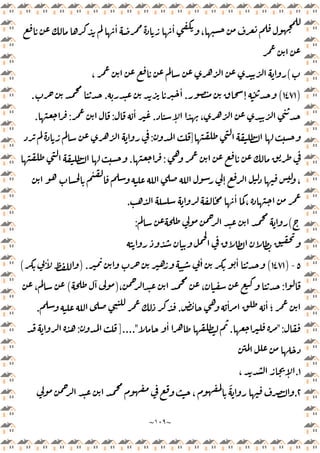 للمجهول فلم تعرف من حسبها، ويكفي أنها زيادة ممرضة لم أنها يذكرها مالك عن نافع
عن ابن عمر
ب) رواية الزبيدي عن الزهري عن سالم عن نافع عن ابن عمر ،
(١٤٧١) وحدثنيه إسحاق بن منصور. أخبرنا يزيد بن عبدربه. حدثنا محمد بن حرب.
حدثني الزبيدي عن الزهري، بهذا الإسناد. غير أنه قال: قال ابن عمر: فراجعتها.
وحسبت لها التطليقة التي طلقتها [قلت المدون: في رواية الزهري عن سالم زيادة لم ترد
في طريق مالك عن نافع عن ابن عمر وهي : فراجعتها. وحسبت لها التطليقة التي طلقتها
، وليس فيها دليل الرفع إلى رسول الله صلى الله عليه وسلم فالقائم بالحساب هو ابن
عمر من اجتهاده كما أنها مخالفة لرواية سلسلة الذهب.
ج) رواية محمد ابن عبد الرحمن مولى طلحة عن سالم:
و تحقيق بطلان الطلاق في الحمل وبيان شذوذ روايته
٥ - (١٤٧١) وحدثنا أبو بكر بن أبي شيبة وزهير بن حرب وابن نمير. (واللفظ لأبي بكر)
قالوا: حدثنا وكيع عن سفيان، عن محمد ابن عبدالرحمن (مولى آل طلحة) عن سالم، عن
ابن عمر ؛ أنه طلق امرأته وهي حائض. فذكر ذلك عمر للنبي صلى الله عليه وسلم.
فقال: "مره فليراجعها. ثم ليطلقها طاهرا أو حاملا"....[ قلت المدون: هذه الرواية قد
دخلها من علل المتن
١.الإيجاز الشديد ،
٢.والتصرف فيها روايةً بالمفهوم ، حيث وقع في مفهوم محمد ابن عبد الرحمن مولى
~١٠٩~